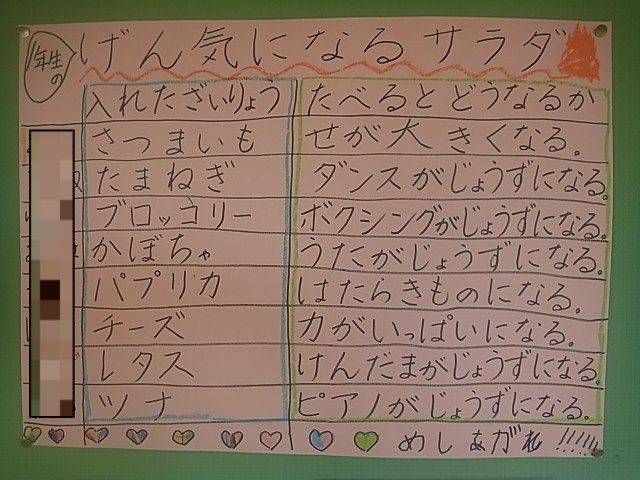 1年生の
げん気になるサラダ
入れたざいりょう たべるとどうなるか
さつまいも せが大きくなる。
たまねぎ ダンスがじょうずになる。
ブロッコリー ボクシングがじょうずになる。
かぼちゃ うたがじょうずになる。
パプリカ はたらきものになる。
チーズ 力がいっぱいになる。
レタス けんだまがじょうずになる。
ツナ ピアノがじょうずになる。
めしあがれ!!!!!